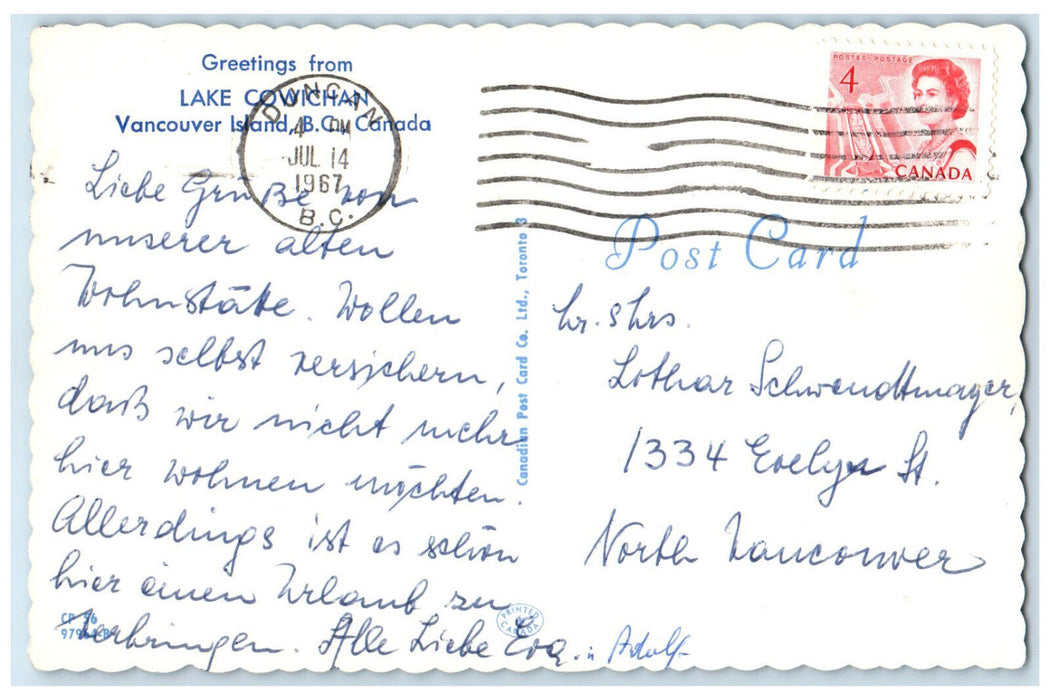 Greetings from
LAKE COWICHAN
Vancouver Island, B.C., Canada
DUNCAN
4 PM
JUL 14
1967
B.C.
POSTES POSTAGE
4
CANADA
Liebe Grüße von
unserer alten
Wohnstätte. Wollen
uns selbst versichern,
daß wir nicht mehr
hier wohnen möchten.
Allerdings ist es schön
hier einen Urlaub zu
verbringen. Alle Liebe Eva u Adolf
CP 56
PRINTED CANADA
Canadian Post Card Co. Ltd., Toronto 3
Post Card
Lothar Schwendtmayer,
1334 Evelyn St.
North Vancouver